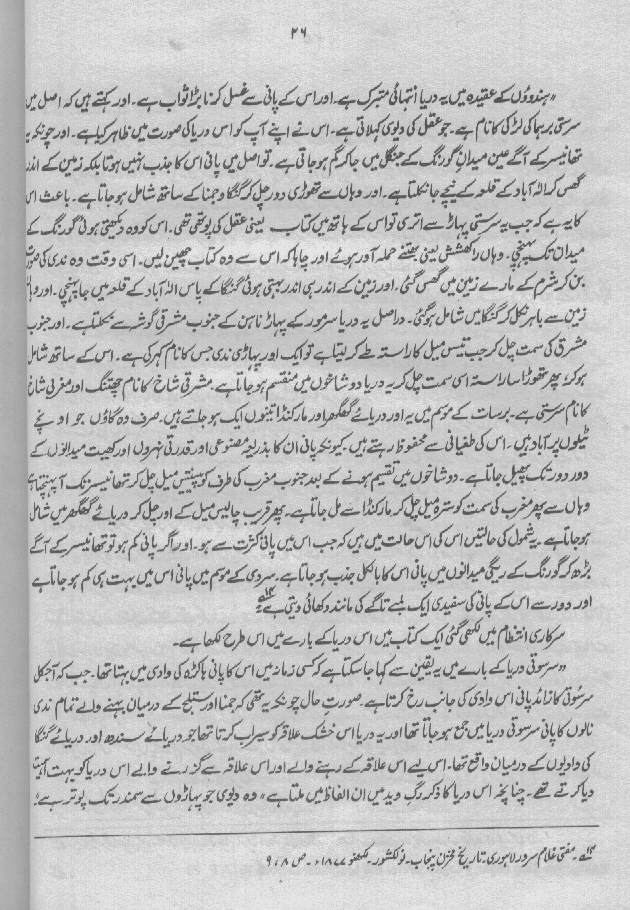 ۲۶
”ہندوؤں کے عقیدہ میں یہ دریا انتہائی متبرک ہے۔ اور اس کے پانی سے غسل کرنا بڑا ثواب ہے۔ اور کہتے ہیں کہ اصل میں
سرستی برہما کی لڑکی کا نام ہے۔ جو عقل کی دیوی کہلاتی ہے۔ اس نے اپنے آپ کو اس دریا کی صورت میں ظاہر کیا ہے۔ اور چونکہ یہ
تھانیسر کے آگے عین میدان گورنگ کے جنگل میں جا کر گم ہو جاتی ہے۔ تو اصل میں پانی اس کا جذب نہیں ہوتا بلکہ زمین کے اندر
گھس کر الہ آباد کے قلعہ کے نیچے جا نکلتا ہے۔ اور وہاں سے تھوڑی دور چل کر گنگا و جمنا کے ساتھ شامل ہو جاتا ہے۔ باعث اس
کا یہ ہے کہ جب یہ سرستی پہاڑ سے اتری تو اس کے ہاتھ میں کتاب یعنی عقل کی پوتھی تھی۔ اس کو وہ دیکھتی ہوئی گورنگ کے
میدان تک پہنچی۔ وہاں راکھشش یعنی بھتنے حملہ آور ہوئے اور چاہا کہ اس سے وہ کتاب چھین لیں۔ اسی وقت وہ ندی کی صورت
بن کر شرم کے مارے زمین میں گھس گئی۔ اور زمین کے اندر ہی اندر بہتی ہوئی گنگا کے پاس الہ آباد کے قلعہ میں جا پہنچی۔ اور وہاں
زمین سے باہر نکل کر گنگا میں شامل ہو گئی۔ دراصل یہ دریا سرمور کے پہاڑ ناہن کے جنوب مشرقی گوشہ سے نکلتا ہے۔ اور جنوب
مشرق کی سمت چل کر جب تیس میل کا راستہ طے کر لیتا ہے تو ایک اور پہاڑی ندی جس کا نام کہر کی ہے۔ اس کے ساتھ شامل
ہو کر، پھر تھوڑا سا راستہ اسی سمت چل کر یہ دریا دو شاخوں میں منقسم ہو جاتا ہے۔ مشرقی شاخ کا نام چھتنگ اور مغربی شاخ
کا نام سرستی ہے۔ برسات کے موسم میں یہ اور دریائے گھگھر اور مارکنڈا تینوں ایک ہو جاتے ہیں۔ صرف وہ گاؤں جو اونچے
ٹیلوں پر آباد ہیں۔ اس کی طغیانی سے محفوظ رہتے ہیں۔ کیونکہ پانی ان کا بذریعہ مصنوعی اور قدرتی نہروں اور کھیت میدانوں کے
دور دور تک پھیل جاتا ہے۔ دو شاخوں میں تقسیم ہونے کے بعد جنوب مغرب کی طرف کو پینتیس میل چل کر تھانیسر تک آ پہنچتا ہے
وہاں سے پھر مغرب کی سمت کو سترہ میل چل کر مارکنڈا سے مل جاتا ہے۔ پھر قریب چالیس میل کے اور چل کر دریائے گھگھر میں شامل
ہو جاتا ہے۔ یہ شمول کی حالتیں اس کی اس حالت میں ہیں کہ جب اس میں پانی کثرت سے ہو۔ اور اگر پانی کم ہو تو تھانیسر کے آگے
بڑھ کر گورنگ کے ریگی میدانوں میں پانی اس کا بالکل جذب ہو جاتا ہے۔ سردی کے موسم میں پانی اس میں بہت ہی کم ہو جاتا ہے
اور دور سے اس کے پانی کی سفیدی ایک لمبے تاگے کی مانند دکھائی دیتی ہے“ ۱۴
سرکاری انتظام میں لکھی گئی ایک کتاب میں اس دریا کے بارے میں اس طرح لکھا ہے۔
”سرسوتی دریا کے بارے میں یہ یقین سے کہا جا سکتا ہے کہ کسی زمانہ میں اس کا پانی ہاکڑہ کی وادی میں بہتا تھا۔ جب کہ آجکل
سرسوتی کا زائد پانی اس وادی کی جانب رخ کرتا ہے۔ صورتِ حال چونکہ یہ تھی کہ جمنا اور ستلج کے درمیان بہنے والے تمام ندی
نالوں کا پانی سرسوتی دریا میں جمع ہو جاتا تھا اور یہ دریا اس خشک علاقہ کو سیراب کرتا تھا جو دریائے سندھ اور دریائے گنگا
کی وادیوں کے درمیان واقع تھا۔ اس لیے اس علاقہ کے رہنے والے اور اس علاقہ سے گزرنے والے اس دریا کو بہت اہمیت
دیا کرتے تھے۔ چنانچہ اس دریا کا ذکر رگ وید میں ان الفاظ میں ملتا ہے ”وہ دیوی جو پہاڑوں سے سمندر تک پوتر ہے۔
۱۴۔ مفتی غلام سرور لاہوری۔ تاریخ مخزن پنجاب۔ نولکشور۔ لکھنو ۱۸۷۷ء۔ ص ۸، ۹